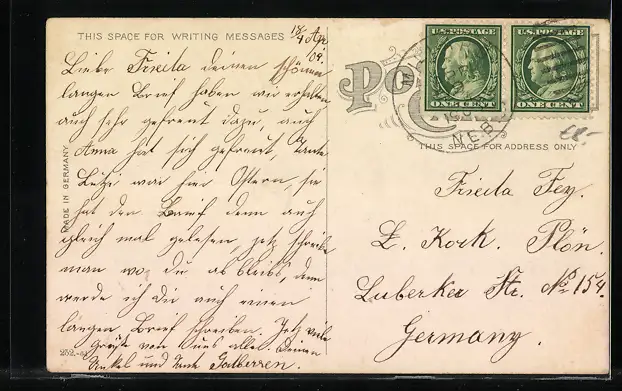 THIS SPACE FOR WRITING MESSAGES
18/4 Apr 09.
Liebe Frieda deinen schönen
langen Brief haben wir erhalten
auch sehr gefreut dazu, auch
Anna hat sich gefreut, Tante
war hier Ostern, sie
hat den Brief denn auch
gleich mal gelesen, jetz schreibe
man wo Du bleibs, denn
werde ich Dir auch einen
längen Brief schreiben. Jetz viele
Grüße von uns alle Deinen
Onkel und Tante
MADE IN GERMANY
252
PO
U.S. POSTAGE
ONE CENT
U.S. POSTAGE
ONE CENT
NEB
THIS SPACE FOR ADDRESS ONLY
Frieda Fey.
Kock. Plön.
Luberker Str. No 154.
Germany.